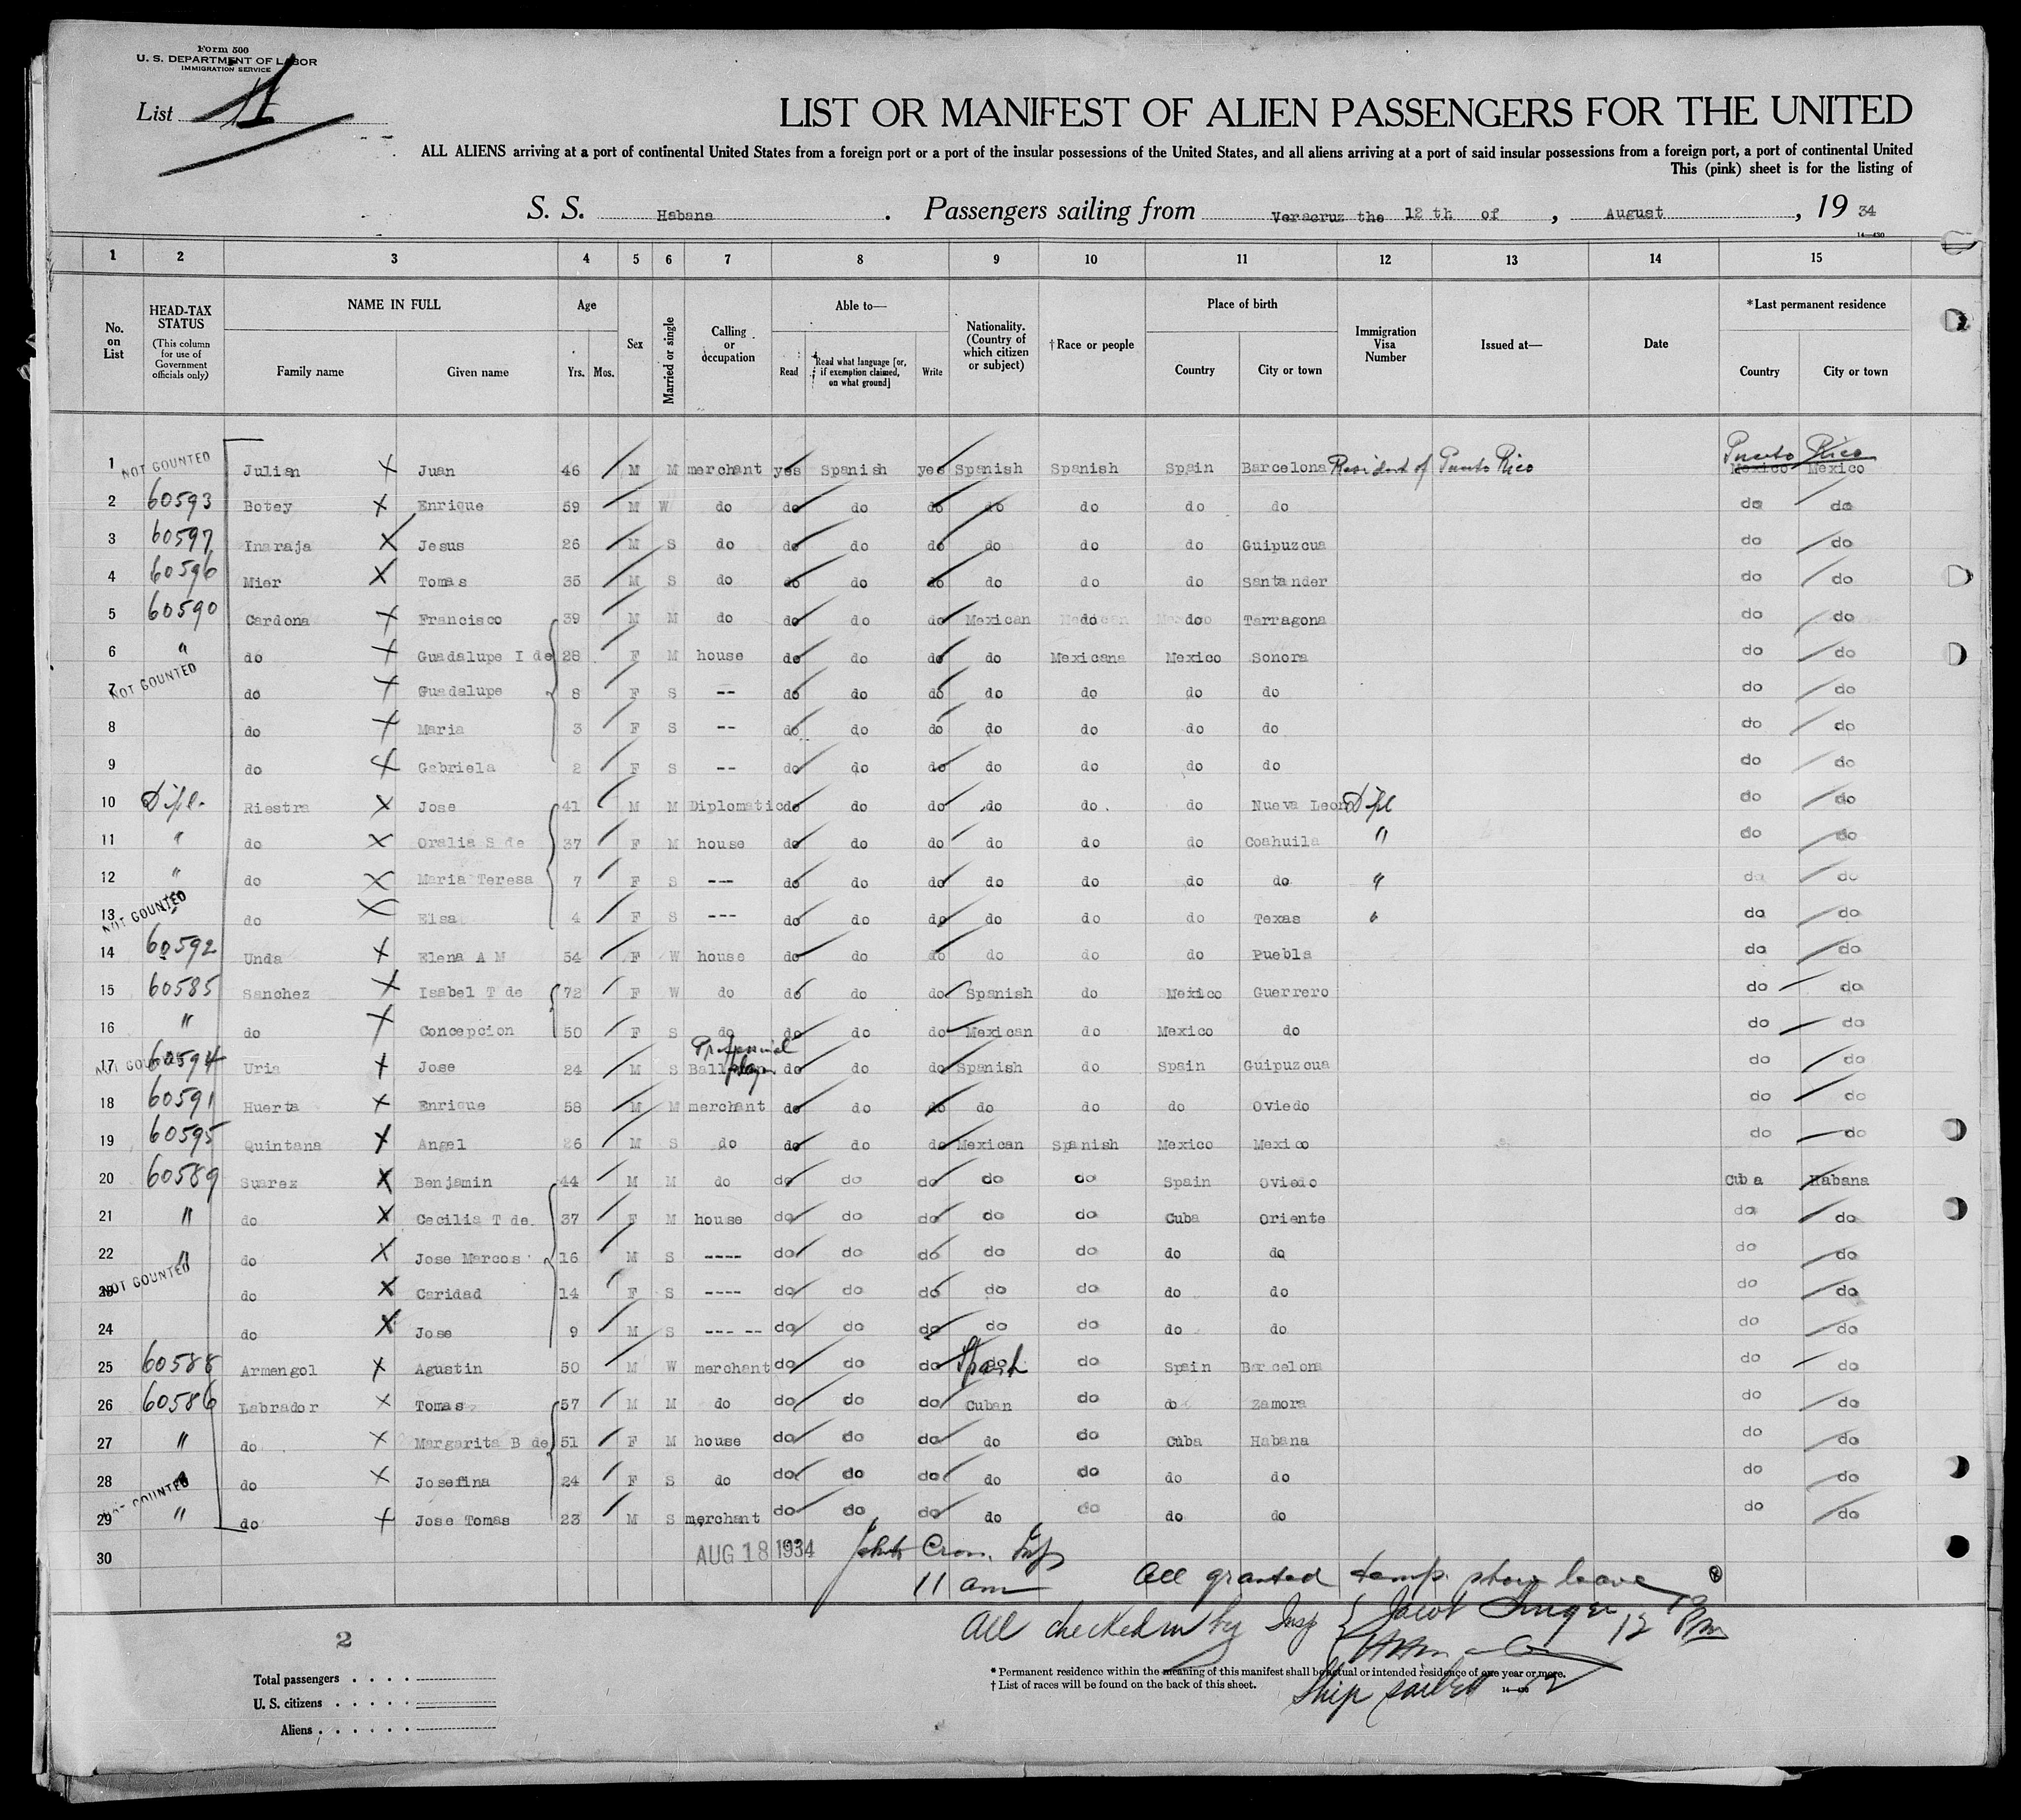 Form 500
U. S. DEPARTMENT OF LABOR
IMMIGRATION SERVICE
List
LIST OR MANIFEST OF ALIEN PASSENGERS FOR THE UNITED
ALL ALIENS arriving at a port of continental United States from a foreign port or a port of the insular possessions of the United States, and all aliens arriving at a port of said insular possessions from a foreign port, a port of continental United
This (pink) sheet is for the listing of
S. S. Habana . Passengers sailing from Veracruz the 12 th of , August , 19 34
14—430
1 2 3 4 5 6 7 8 9 10 11 12 13 14 15
No. on List
HEAD-TAX STATUS (This column for use of Government officials only)
NAME IN FULL
Family name Given name
Age
Yrs. Mos.
Sex
Married or single
Calling or occupation
Able to—
Read
Read what language [or, if exemption claimed, on what ground]
Write
Nationality. (Country of which citizen or subject)
†Race or people
Place of birth
Country City or town
Immigration Visa Number
Issued at—
Date
*Last permanent residence
Country City or town
Puerto Rico
1 NOT COUNTED Julian X Juan 46 M M merchant yes Spanish yes Spanish Spanish Spain Barcelona Resident of Puerto Rico Mexico Mexico
2 60593 Botey X Enrique 59 M W do do do do do do do do do do
3 60597 Inaraja X Jesus 26 M S do do do do do do do Guipuzcua do do
4 60596 Mier X Tomas 35 M S do do do do do do do Santander do do
5 60590 Cardona X Francisco 39 M M do do do do Mexican do do Tarragona do do
6 " do X Guadalupe I de 28 F M house do do do do Mexicana Mexico Sonora do do
7 NOT COUNTED do X Guadalupe 8 F S -- do do do do do do do do do
8 do X Maria 3 F S -- do do do do do do do do do
9 do X Gabriela 2 F S -- do do do do do do do do do
10 Dipl. Riestra X Jose 41 M M Diplomatic do do do do do do Nueva Leon Dipl do do
11 " do X Oralia S de 37 F M house do do do do do do Coahuila " do do
12 " do X Maria Teresa 7 F S --- do do do do do do do " do do
13 NOT COUNTED " do X Elsa 4 F S --- do do do do do do Texas " do do
14 60592 Unda X Elena A M 54 F W house do do do do do do Puebla do do
15 60585 Sanchez X Isabel T de 72 F W do do do do Spanish do Mexico Guerrero do do
16 " do X Concepcion 50 F S do do do do Mexican do Mexico do do do
17 NOT COUNTED 60594 Uria X Jose 24 M S Professional Ball player do do do Spanish do Spain Guipuzcua do do
18 60591 Huerta X Enrique 58 M M merchant do do do do do do Oviedo do do
19 60595 Quintana X Angel 26 M S do do do do Mexican Spanish Mexico Mexico do do
20 60589 Suarez X Benjamin 44 M M do do do do do do Spain Oviedo Cuba Habana
21 " do X Cecilia T de 37 F M house do do do do do Cuba Oriente do do
22 " do X Jose Marcos 16 M S ---- do do do do do do do do do
23 NOT COUNTED do X Caridad 14 F S ---- do do do do do do do do do
24 do X Jose 9 M S --- -- do do do do do do do do do
25 60588 Armengol X Agustin 50 M W merchant do do do Spanish do Spain Barcelona do do
26 60586 Labrador X Tomas 57 M M do do do do Cuban do do Zamora do do
27 " do X Margarita B de 51 F M house do do do do do Cuba Habana do do
28 " do X Josefina 24 F S do do do do do do do do do do
29 NOT COUNTED " do X Jose Tomas 23 M S merchant do do do do do do do do do
30 AUG 18 1934
11 am All granted temp. shore leave
All checked in by Insp Jacob 12
Ship sailed 12
2
Total passengers . . . .
U. S. citizens . . . . .
Aliens . . . . . .
* Permanent residence within the meaning of this manifest shall be actual or intended residence of one year or more.
† List of races will be found on the back of this sheet.
14—430